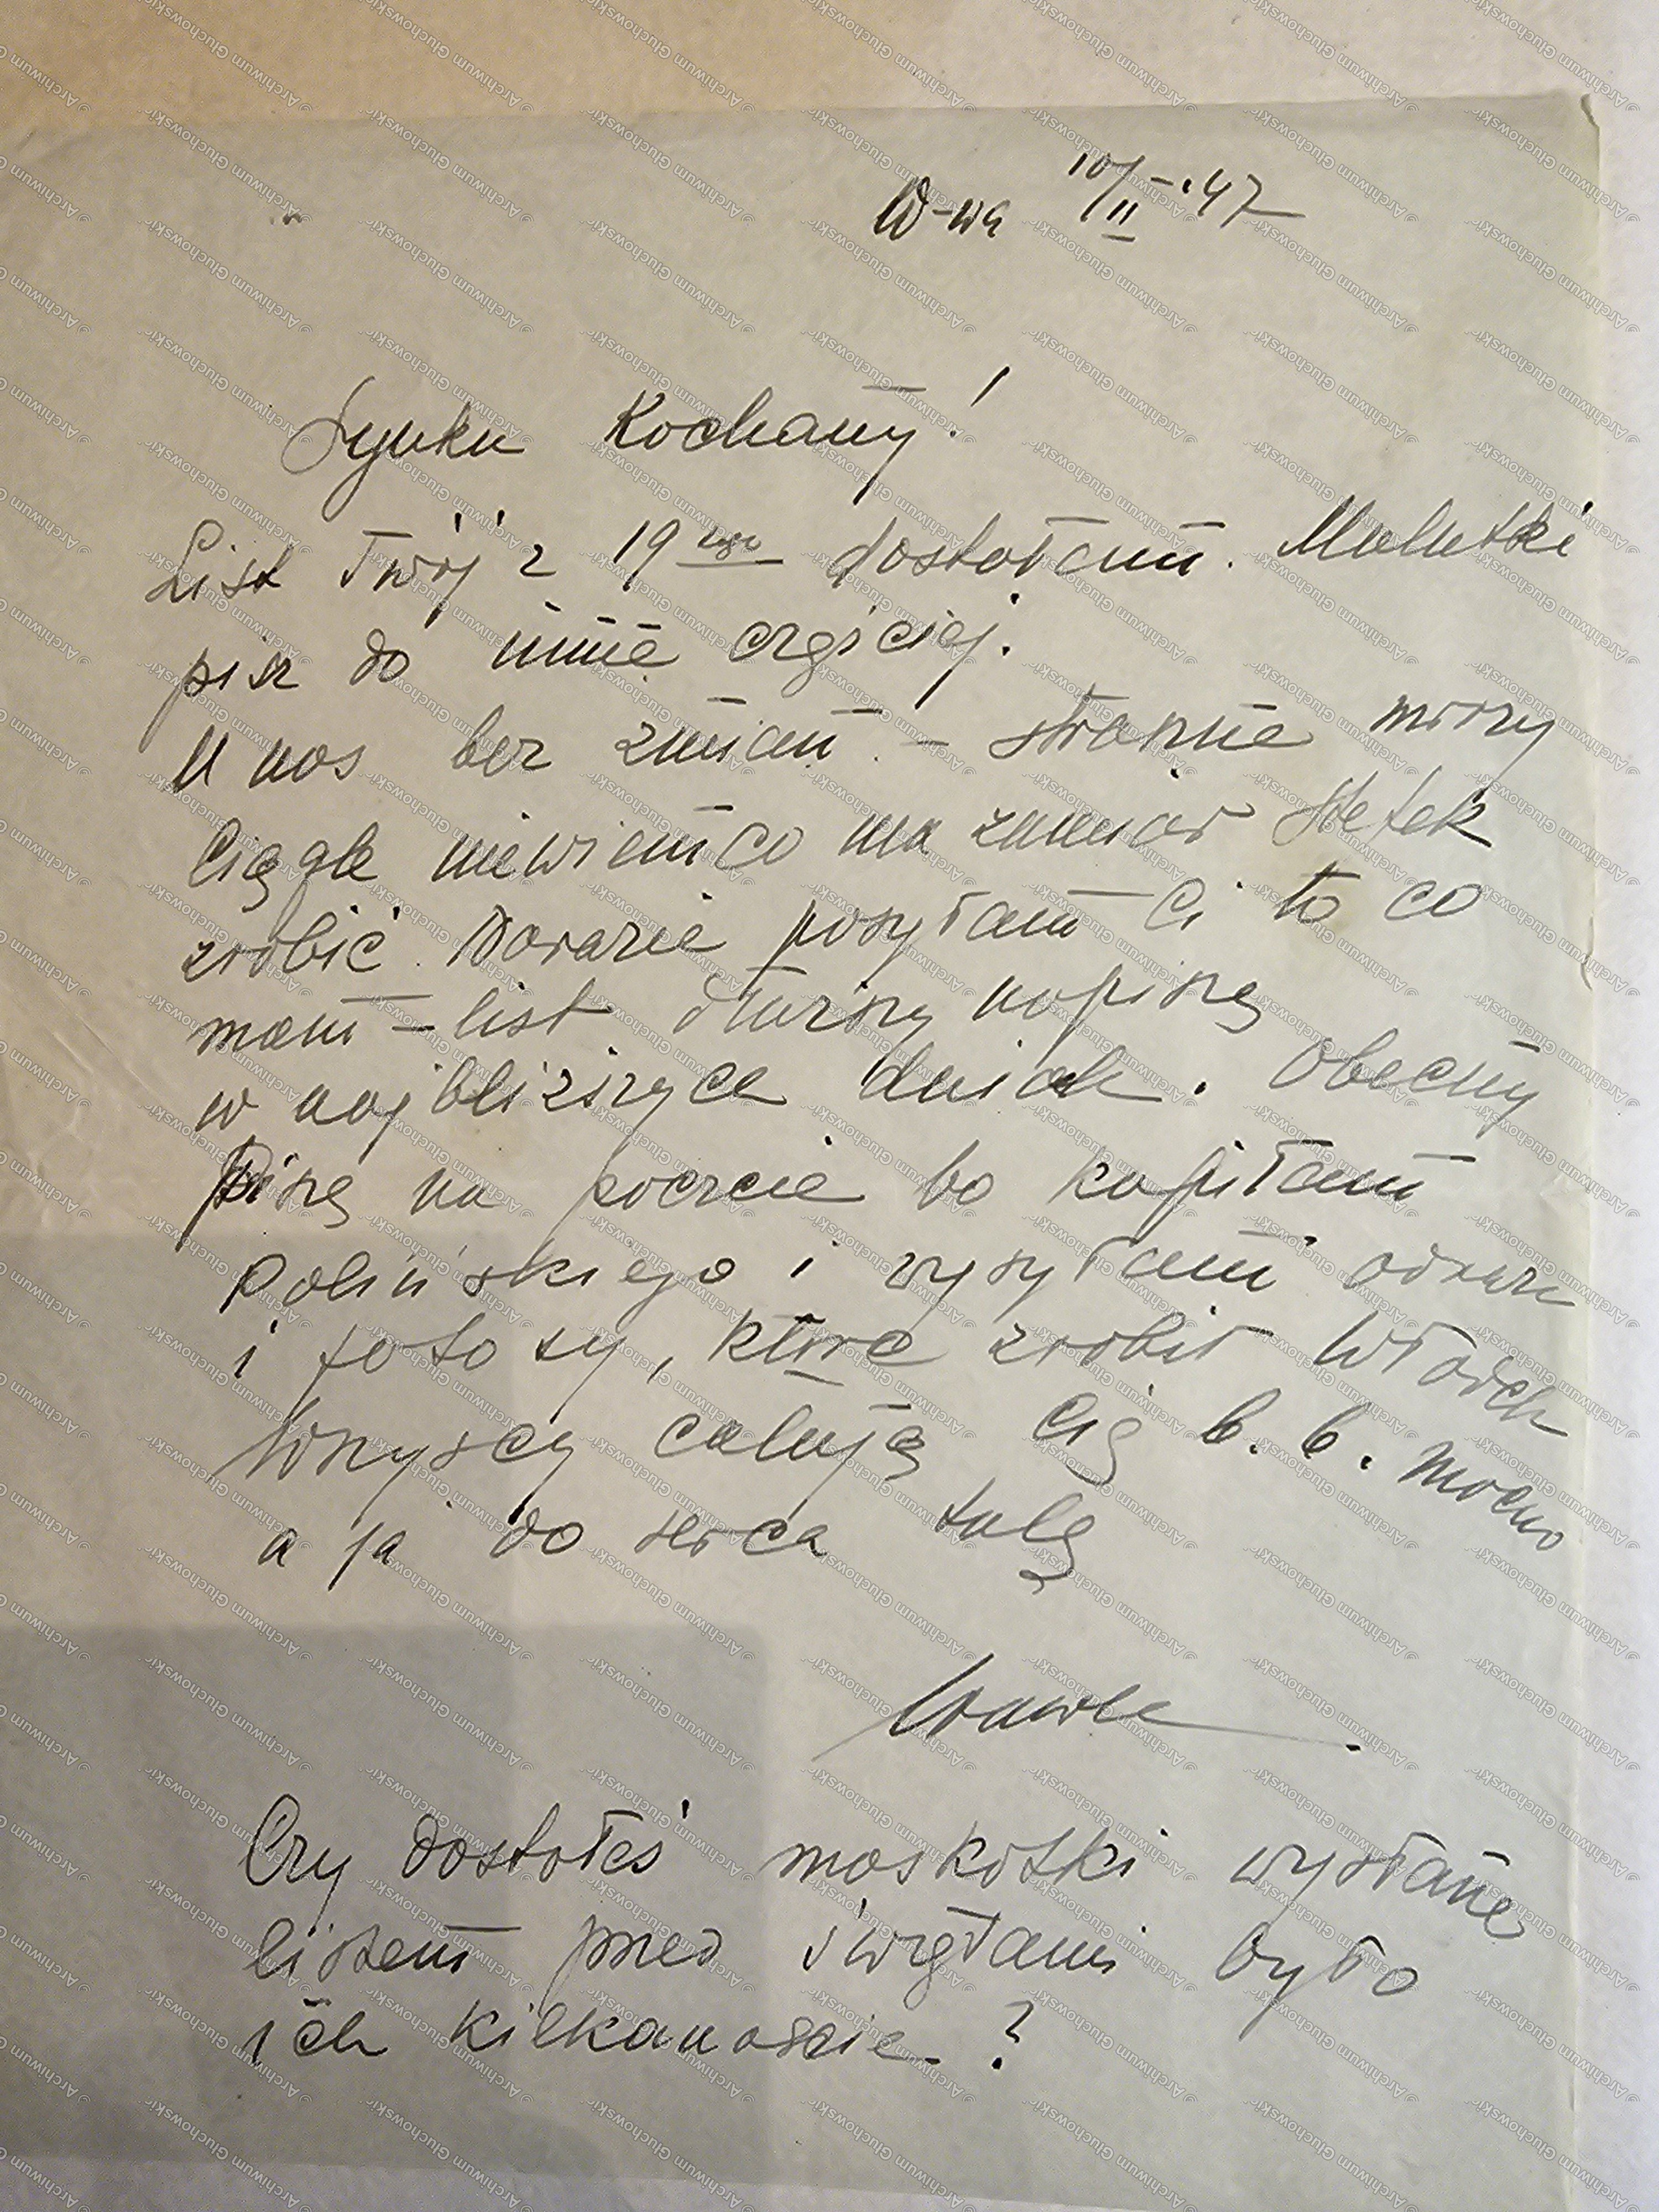 W-wa 10/II.47
Synku Kochany!
List Twój z 19 dostałam. Malutki
pisz do mnie częściej.
U nas bez zmian. – straszne mrozy
Ciągle niewiem co ma zamiar Stefek
zrobić. Narazie posyłam Ci to co
mam – list dłuższy napiszę
w najbliższych dniach. Obecny
Piszę na poczcie bo kupiłam
Rolińskiego i wysyłam odrazu
i fotosy, które zrobił Włodek
Wszyscy całują Cię b. b. mocno
a ja do serca tulę
Czy dostałeś maskotki wysłane
listem przed świętami było
ich kilkanaście ?
© Archiwum Głuchowski